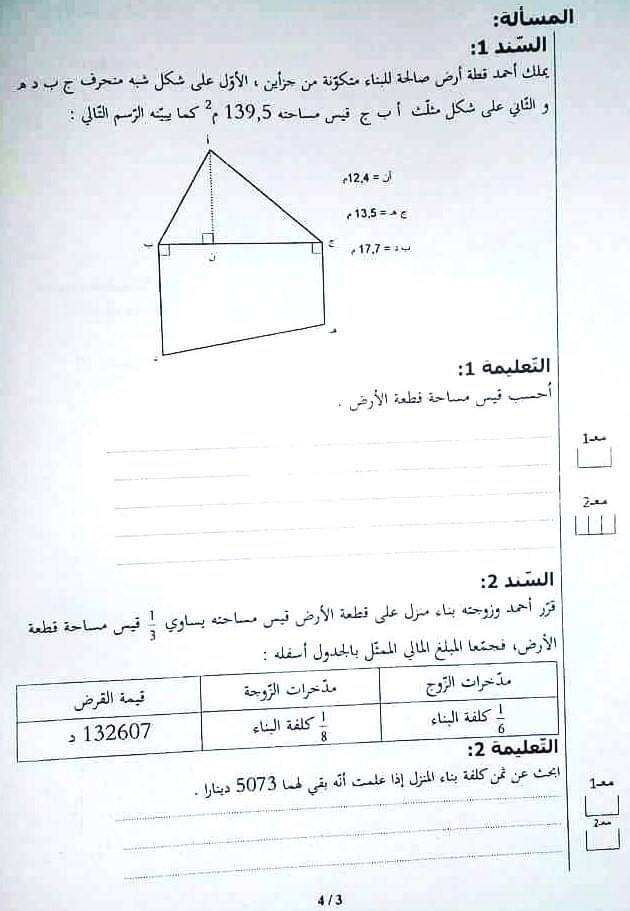 المسألة:
السّند 1:
يملك أحمد قطة أرض صالحة للبناء متكوّنة من جزأين ، الأوّل على شكل شبه منحرف ج ب د ه
و الثّاني على شكل مثلّث أ ب ج قيس مساحته 139,5 م² كما يبيّنه الرّسم التّالي :
أ
أن = 12,4م
ج هـ = 13,5 م
ب د = 17,7 م
ب
ج
ن
هـ
د
التّعليمة 1:
أحسب قيس مساحة قطعة الأرض .
معـ1
معـ2
السّند 2:
قرّر أحمد وزوجته بناء منزل على قطعة الأرض قيس مساحته يساوي 1/3 قيس مساحة قطعة
الأرض، فجمّعا المبلغ المالي الممثّل بالجدول أسفله :
مدّخرات الزّوج مدّخرات الزّوجة قيمة القرض
1/6 كلفة البناء 1/8 كلفة البناء 132607 د
التّعليمة 2:
ابحث عن ثمن كلفة بناء المنزل إذا علمت أنّه بقي لهما 5073 دينارا .
معـ1
معـ2
4 / 3